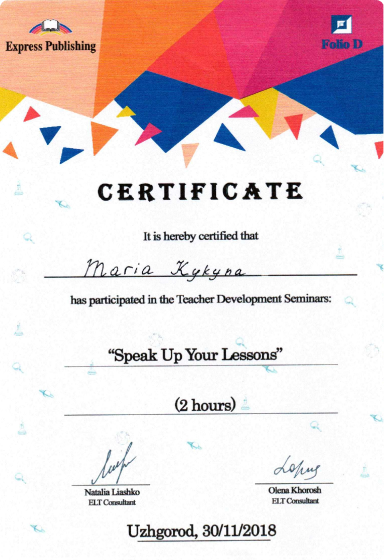 Express Publishing
Folio D
CERTIFICATE
It is hereby certified that
Maria Kykyna
has participated in the Teacher Development Seminars:
“Speak Up Your Lessons”
(2 hours)
Natalia Liashko
ELT Consultant
Olena Khorosh
ELT Consultant
Uzhgorod, 30/11/2018